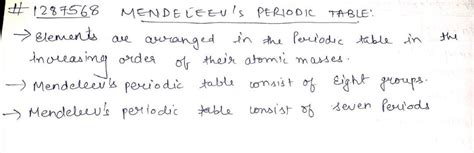 # 1287568 MENDELEEV's PERIODIC TABLE:
→ Elements are arranged in the Periodic table in the
Increasing order of their atomic masses.
→ Mendeleev's periodic table consist of Eight groups.
→ Mendeleev's periodic table consist of seven Periods